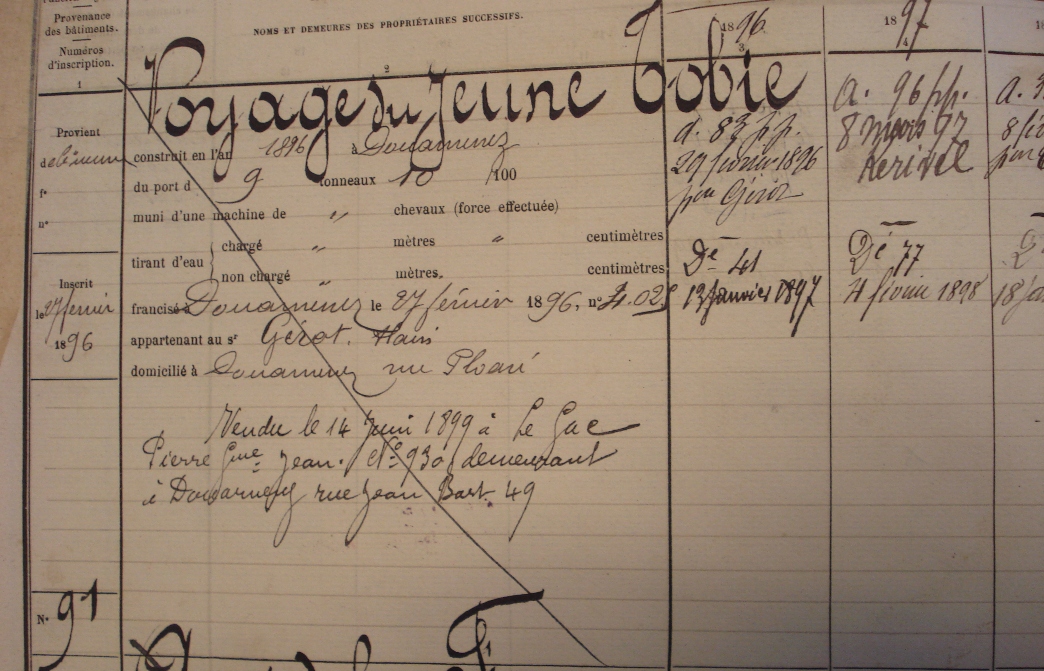 Provenance
des bâtiments.
Numéros
d'inscription.
1
NOMS ET DEMEURES DES PROPRIÉTAIRES SUCCESSIFS.
2
1896
3
1897
4
Voyage du Jeune Tobie
Provient
de
fo
no
construit en l'an 1896 à Douarnenez
du port d 9 tonneaux 10 /100
muni d'une machine de " chevaux (force effectuée)
tirant d'eau
chargé " mètres " centimètres
non chargé " mètres " centimètres
Inscrit
le 27 février
1896
francisé à Douarnenez le 27 février 1896, no 4.025
appartenant au sr Gérot. Alain
domicilié à Douarnenez rue Ploaré
Vendu le 14 Juin 1899 à Le Gac
Pierre Gme Jean. No 930 demeurant
à Douarnenez rue Jean Bart 49
a. 83 pp.
29 février 1896
par Gérot
De 41
13 janvier 1897
a. 96 pp.
8 mars 97
De 77
4 février 1898
a.
No 91